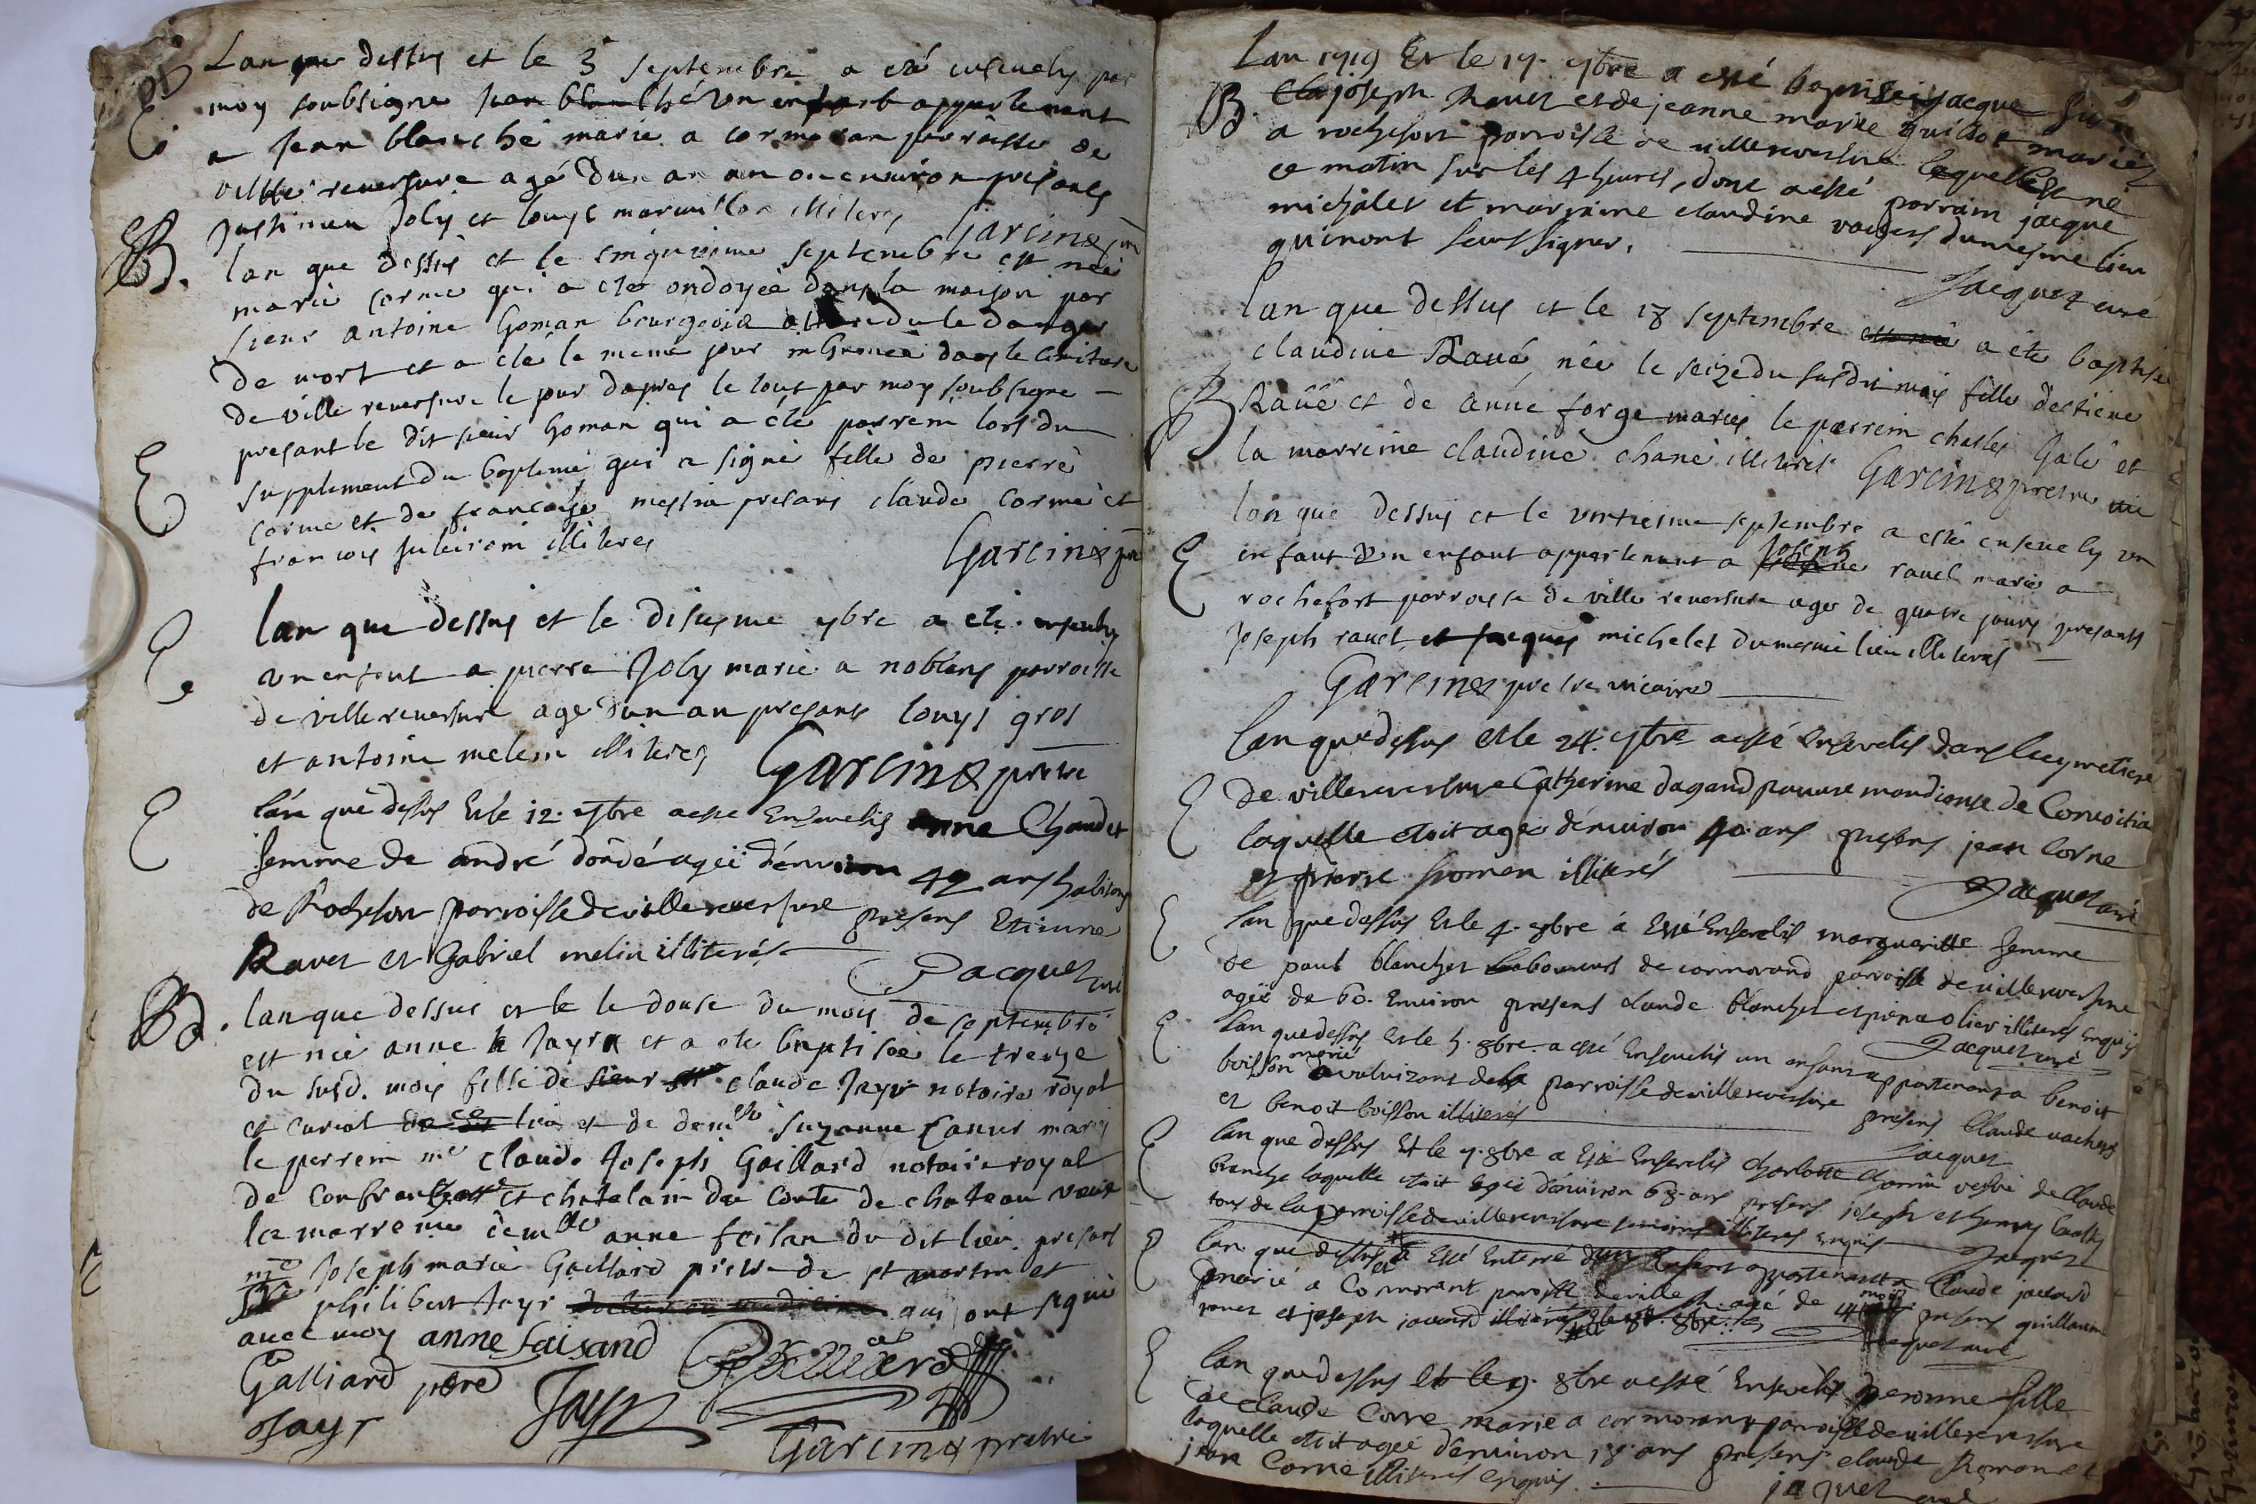 Lan que dessus et le 3 septembre a esté ensevely par
moy soubsigne un enfant appartenant
a Jean blanche marie a cormoran parroisse de
ville reversure agé dun an ou environ presants
Justinien Joly et louys marvillon illiteres Garcin
B. lan que dessus et le cinquiesme septembre est née
marie corme qui a eté ondoyée dans la maison par
sieur antoine Goman bourgeois attendu le danger
de mort et a eté le meme jour dans le
de ville reversure le jour dapres le tout par moy soubsigne
presant le dit sieur Goman qui a eté parrein lors du
E supplement du bapteme qui a signé fille de pierre
corme et de francoise messia presans claude corme et
francois illiteres Garcin
E lan que dessus et le disiesme 7bre a eté ensevely
un enfant a pierre Joly marie a noblens parroisse
de ville reversure age dun an presants louys gros
et antoine melein illiteres Garcin pretre
E lan que dessus Et le 12. 7bre a esté Ensevelis anne Chaudet
femme de andré dondé agée d'environ 42 ans habitant
de Rochefort parroisse de villereversure presens Etienne
Ravet et Gabriel melin illiterés Jacquet curé
B. lan que dessus et le douse du mois de septembre
est née anne Jayr et a eté baptisée le treize
du susd. mois fille de sieur claude Jayr notaire royal
et curial lieu et de demlle suzanne mariés
le perrein me claude Joseph Gaillard notaire royal
de confranchette et chatelain du conte de chateau vieux
la marreine demlle anne feisan du dit lieu presans
me Joseph marie Gaillard prestre de st martin et
philibert Jayr docteur en medicine qui ont signé
avec moy anne faisand
Galliard pere Jayr
Jayr Garcin pretre
Lan 1719 Et le 17. 7bre a esté baptisé jacque fils
B. a joseph Ravet et de jeanne marie guillot mariés
a rochefort parroisse de villereversure lequel est né
ce matin sur les 4 heures, dont a esté parrain jacque
michalet et marraine claudine vachers du mesme lieu
qui n'ont seu signer.
Jacquet curé
lan que dessus et le 18 septembre a eté baptisée
claudine Ravé, née le seize du susdit mois fille destiene
B Ravé et de anne forge mariés le parrein charles Galé et
la marreine claudine chané illiteres Garcin pretre vic
lan que dessus et le vintiesme septembre a esté ensevely un
E enfant d'un enfant appartenant a Joseph ravet marié a
rochefort parroisse de ville reversure age de quatre jours presants
Joseph ravet, et Jacques michelet du mesme lieu illiteres
Garcin pretre vicaire
Lan que dessus et le 24. 7bre a esté Ensevelis dans le cymetiere
E de villereversure Catherine dagand pauvre mandiante de
laquelle etoit agée d'environ 40 ans presens jean Corne
et pierre homan illiterés
Jacquet curé
E lan que dessus Et le 4. 8bre a Esté Ensevelis margueritte femme
de paul blanchet laboureurs de cormorand parroisse de villereversure
agée de 60. Environ presens claude blanchet et pierre olier illiteres Enquis
Jacquet curé
E lan que dessus Et le 5. 8bre. a esté Ensevelis un enfant appartenant a benoit
boisson marié a de la parroisse de villereversure presens Claude vachers
et benoit boisson illiterés
Jacquet
E lan que dessus Et le 7. 8bre a Esté Ensevelis charlotte veuve de Claude
blanche laquelle etoit agée d'environ 68 ans presens joseph et
tous de la parroisse de villereversure illiteres enquis
Jacquet
E lan que dessus a Esté Enterré un Enfant appartenant a Claude javard
marié a Cormorant parroisse de ville agé de 14 mois presens guillaume
ravet et joseph javard illiterés
Jacquet curé
E lan que dessus Et le 9. 8bre a esté Ensevelis peronne fille
de claude Corne marié a cormorant parroisse de villereversure
laquelle etoit agée d'environ 18 ans presens claude homan et
jean Corne illiterés enquis.
jaquet curé